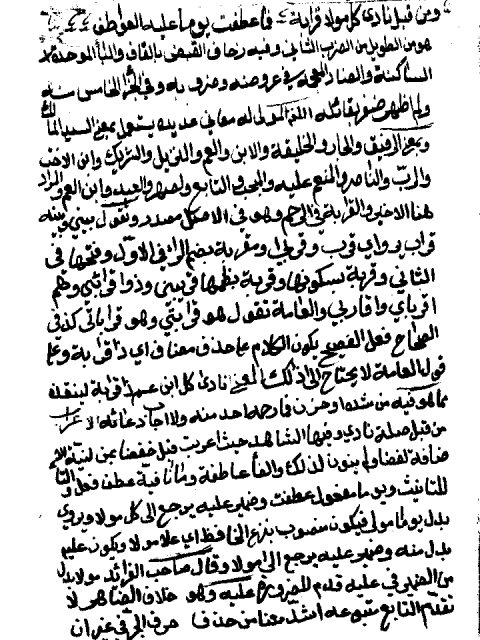 ومن قبل نادى كل مولا قرابة فما عطفت يوما عليه العواطف
هو من الطويل من الضرب الثاني وفيه زحاف القبض بالقاف والباء الموحدة
الساكنة والضاد المعجمة في عروضه وضربه وفي الجزء الخامس منه
ولم اظهر ضفر بقائله اللغة المولى له معاني عديدة يستعمل بمعنى السيد المالك
وبمعنى الرفيق والجار والحليفة والابن والعم والنزيل والشريك وابن الاخت
والرب والناصر والمنعم عليه والمحب والتابع والصهر والعبد وابن العم والمراد
هنا الاخير والقرابة في الرحم وهو في الاصل مصدر وتقول بيني وبينه
قرابة وقرب وقربى ومقربة بضم الراء في الاول وفتحها في
الثاني وقربة بسكونها وقربة بضمها قريبي وذو قرابتي وهم
اقرباي واقاربي والعامة تقول هو قرابتي وهو قراباتي كذا في
الصحاح فعلى الفصيح يكون الكلام على حذف مضاف اي ذا قرابة وعلى
قول العامة لا يحتاج الى ذلك المعنى نادى كل ابن عم ذا قرابة لينقذه
مما هو فيه من شدة وحزن فما رحمه احد منه ولا اجاب دعائه الاعراب
من قبل صلة نادى وفيها الشاهد حيث اعربت قبل خفضا بمن لنية الا
ضافة لفظا ولم ينون لذلك والفاء عاطفة وما نافية عطف فعل والتاء
للتانيث ويوما مفعول عطفت وضمير عليه يرجع الى كل مولا ويروى
بدل يوما مولى فيكون منصوب بنزع الخافظ اي على مولا ويكون عليه
بدل منه وضمير عليه يرجع الى مولا وقال صاحب الفرائد مولا بدل
من الضمير في عليه قدم للضرورة عليه وهو خلاف الظاهر لا
تقدم التابع متبوعه اشد منعا من حذف حرف الجر في غير ان